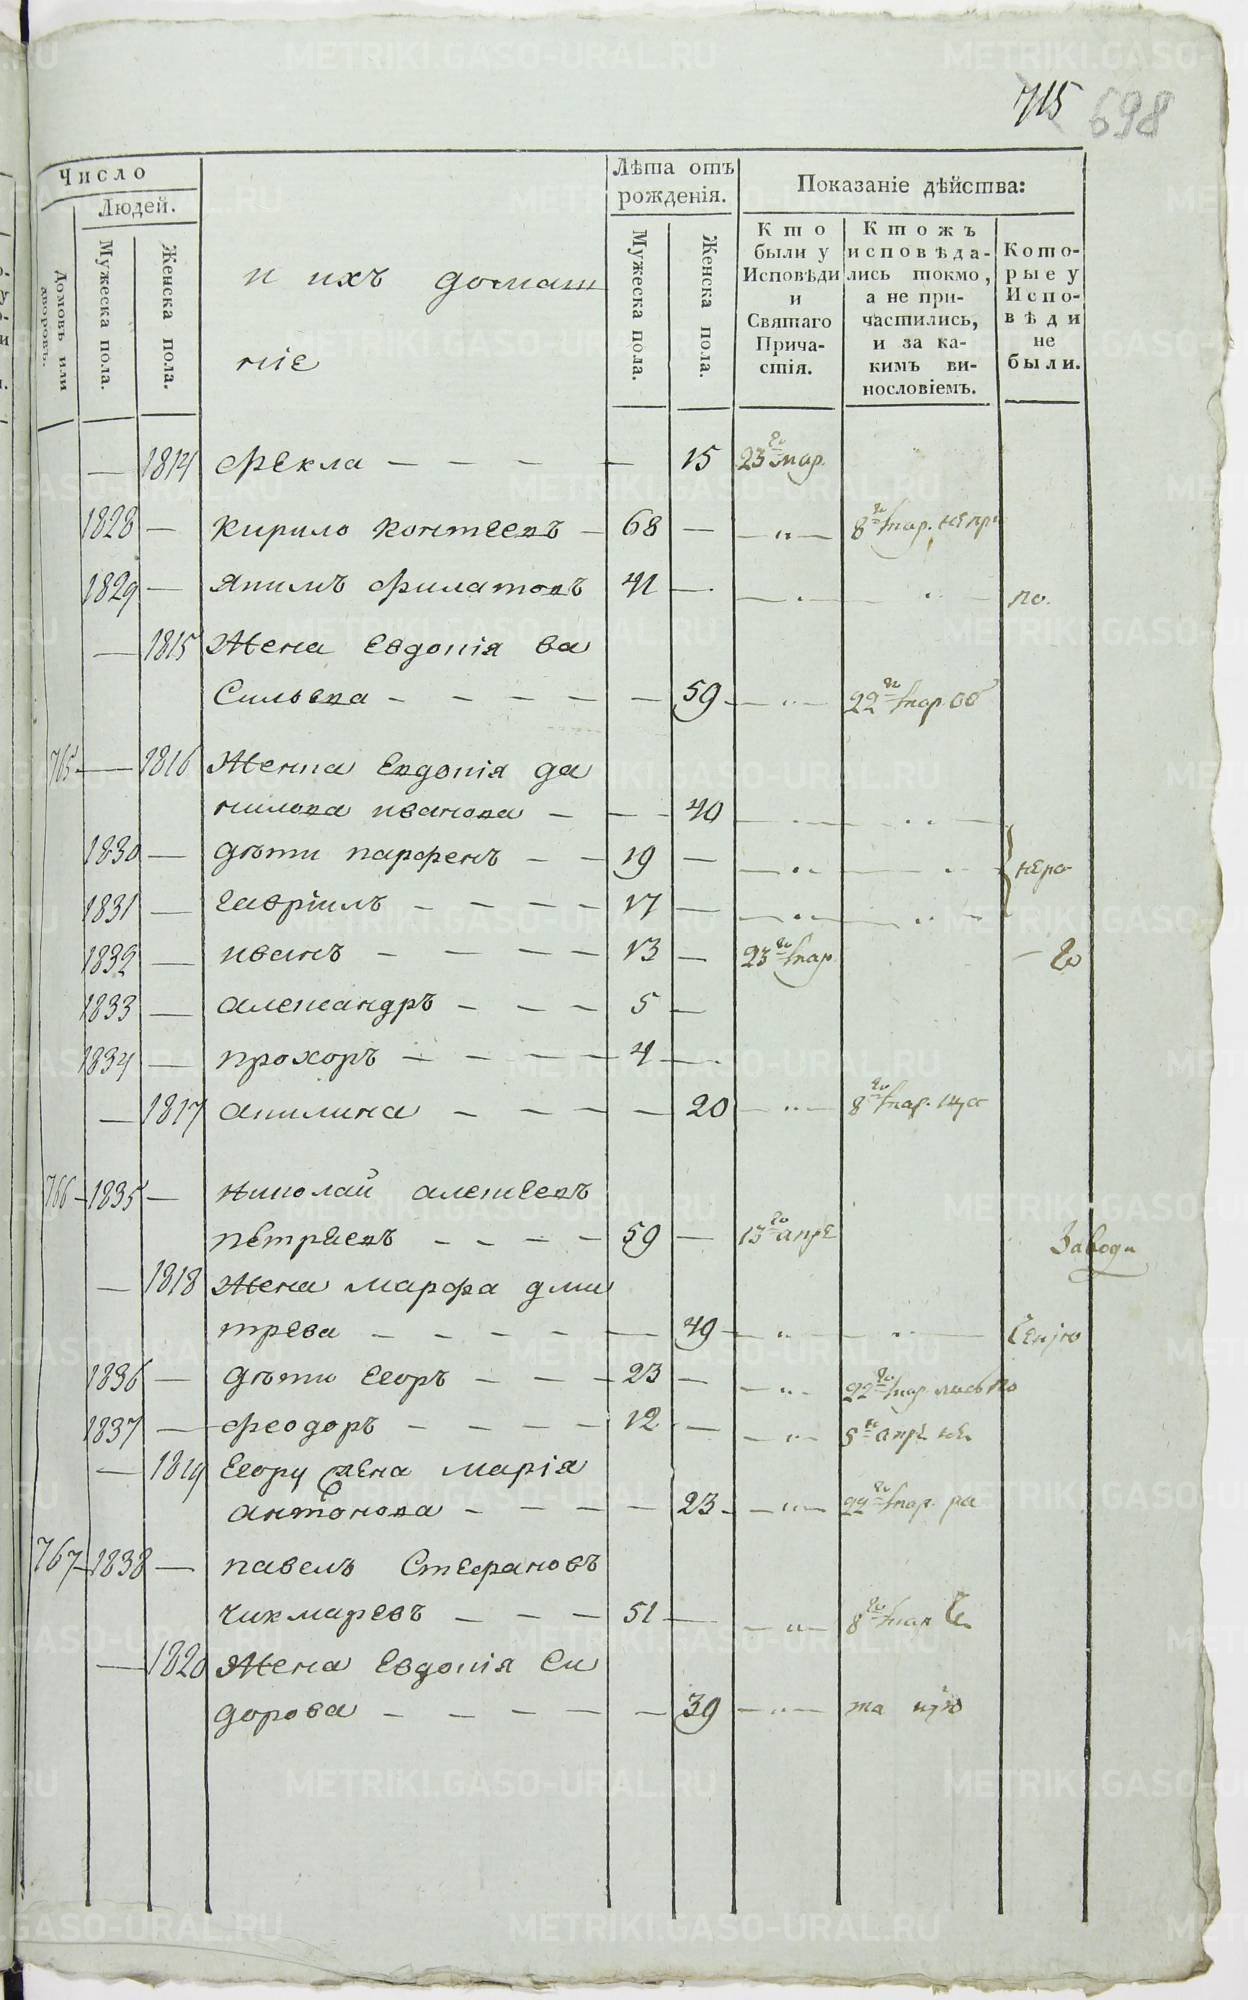 715 698
Число
Людей.
Домовъ или дворовъ.
Мужеска пола.
Женска пола.
и ихъ домаш
ніе
Лѣта отъ
рожденія.
Мужеска пола.
Женска пола.
Показаніе дѣйства:
Кто
были у
Исповѣди
и
Святаго
Прича-
стія.
Ктожъ
исповѣда-
лись токмо,
а не при-
частились,
и за ка-
кимъ ви-
нословіемъ.
Кото-
рые у
Испо-
вѣди
не
были.
— 1814 Фекла — — — — 15 23го мар.
1828 — Кирило — 68 — — „ — 8го мар. непри
1829 — Якимъ Филатовъ 41 — по.
— 1815 Жена Евдокія Ва
сильева — — — — — 59 — „ — 22го мар. об
765 — 1816 Женка Евдокія Да
нилова Иванова — — — 40
1830 — дѣти Парфенъ — — 19 —
нера
1831 — Гавріилъ — — — — 17 —
1832 — Иванъ — — — — 13 — 23го мар. — го
1833 — Александръ — — — 5 —
1834 — Прохоръ — — — — 4 —
— 1817 Акилина — — — — 20 — „ — 8го мар.
766 — 1835 — Николай Алексеевъ
59 — 13го апре Заводи
— 1818 Жена Марфа Дми
трева — — — — — — 49 — „ — „ —
1836 — дѣти Егоръ — — — 23 — — „ — 22го мар. по
1837 — Феодоръ — — — — 12 — — „ — апре не
— 1819 Егору жена Марія
Антонова — — — — 23 — „ — 22го мар. ра
767 — 1838 — Павелъ Стефановъ
Чикмаревъ — — — 51 — — „ — 8го мар
— 1820 Жена Евдокія Си
дорова — — — — — 39 — „ — та
METRIKI.GASO-URAL.RU